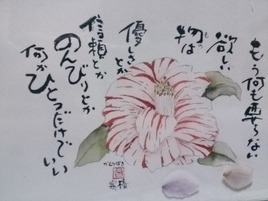 もう何も要らない
欲しい
物は
優しさ
とか
信頼とか
のんびりとか
何かひとつだけでいい